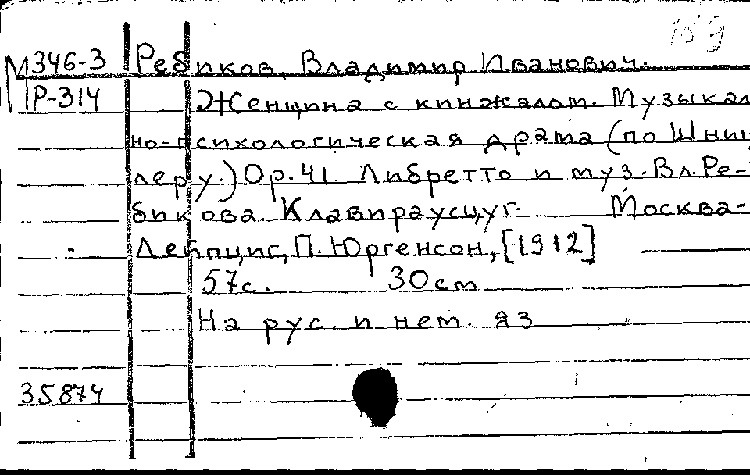 169
М346-3 Ребиков, Владимир Иванович.
Р-314 Женщина с кинжалом. Музыкаль
но-психологическая драма (по Шниц
леру.) Op. 41. Либретто и муз. Вл. Ре-
бикова. Клавираусцуг. Москва-
Лейпциг, П. Юргенсон, [1912]
57с. 30см
На рус. и нем. яз
35874